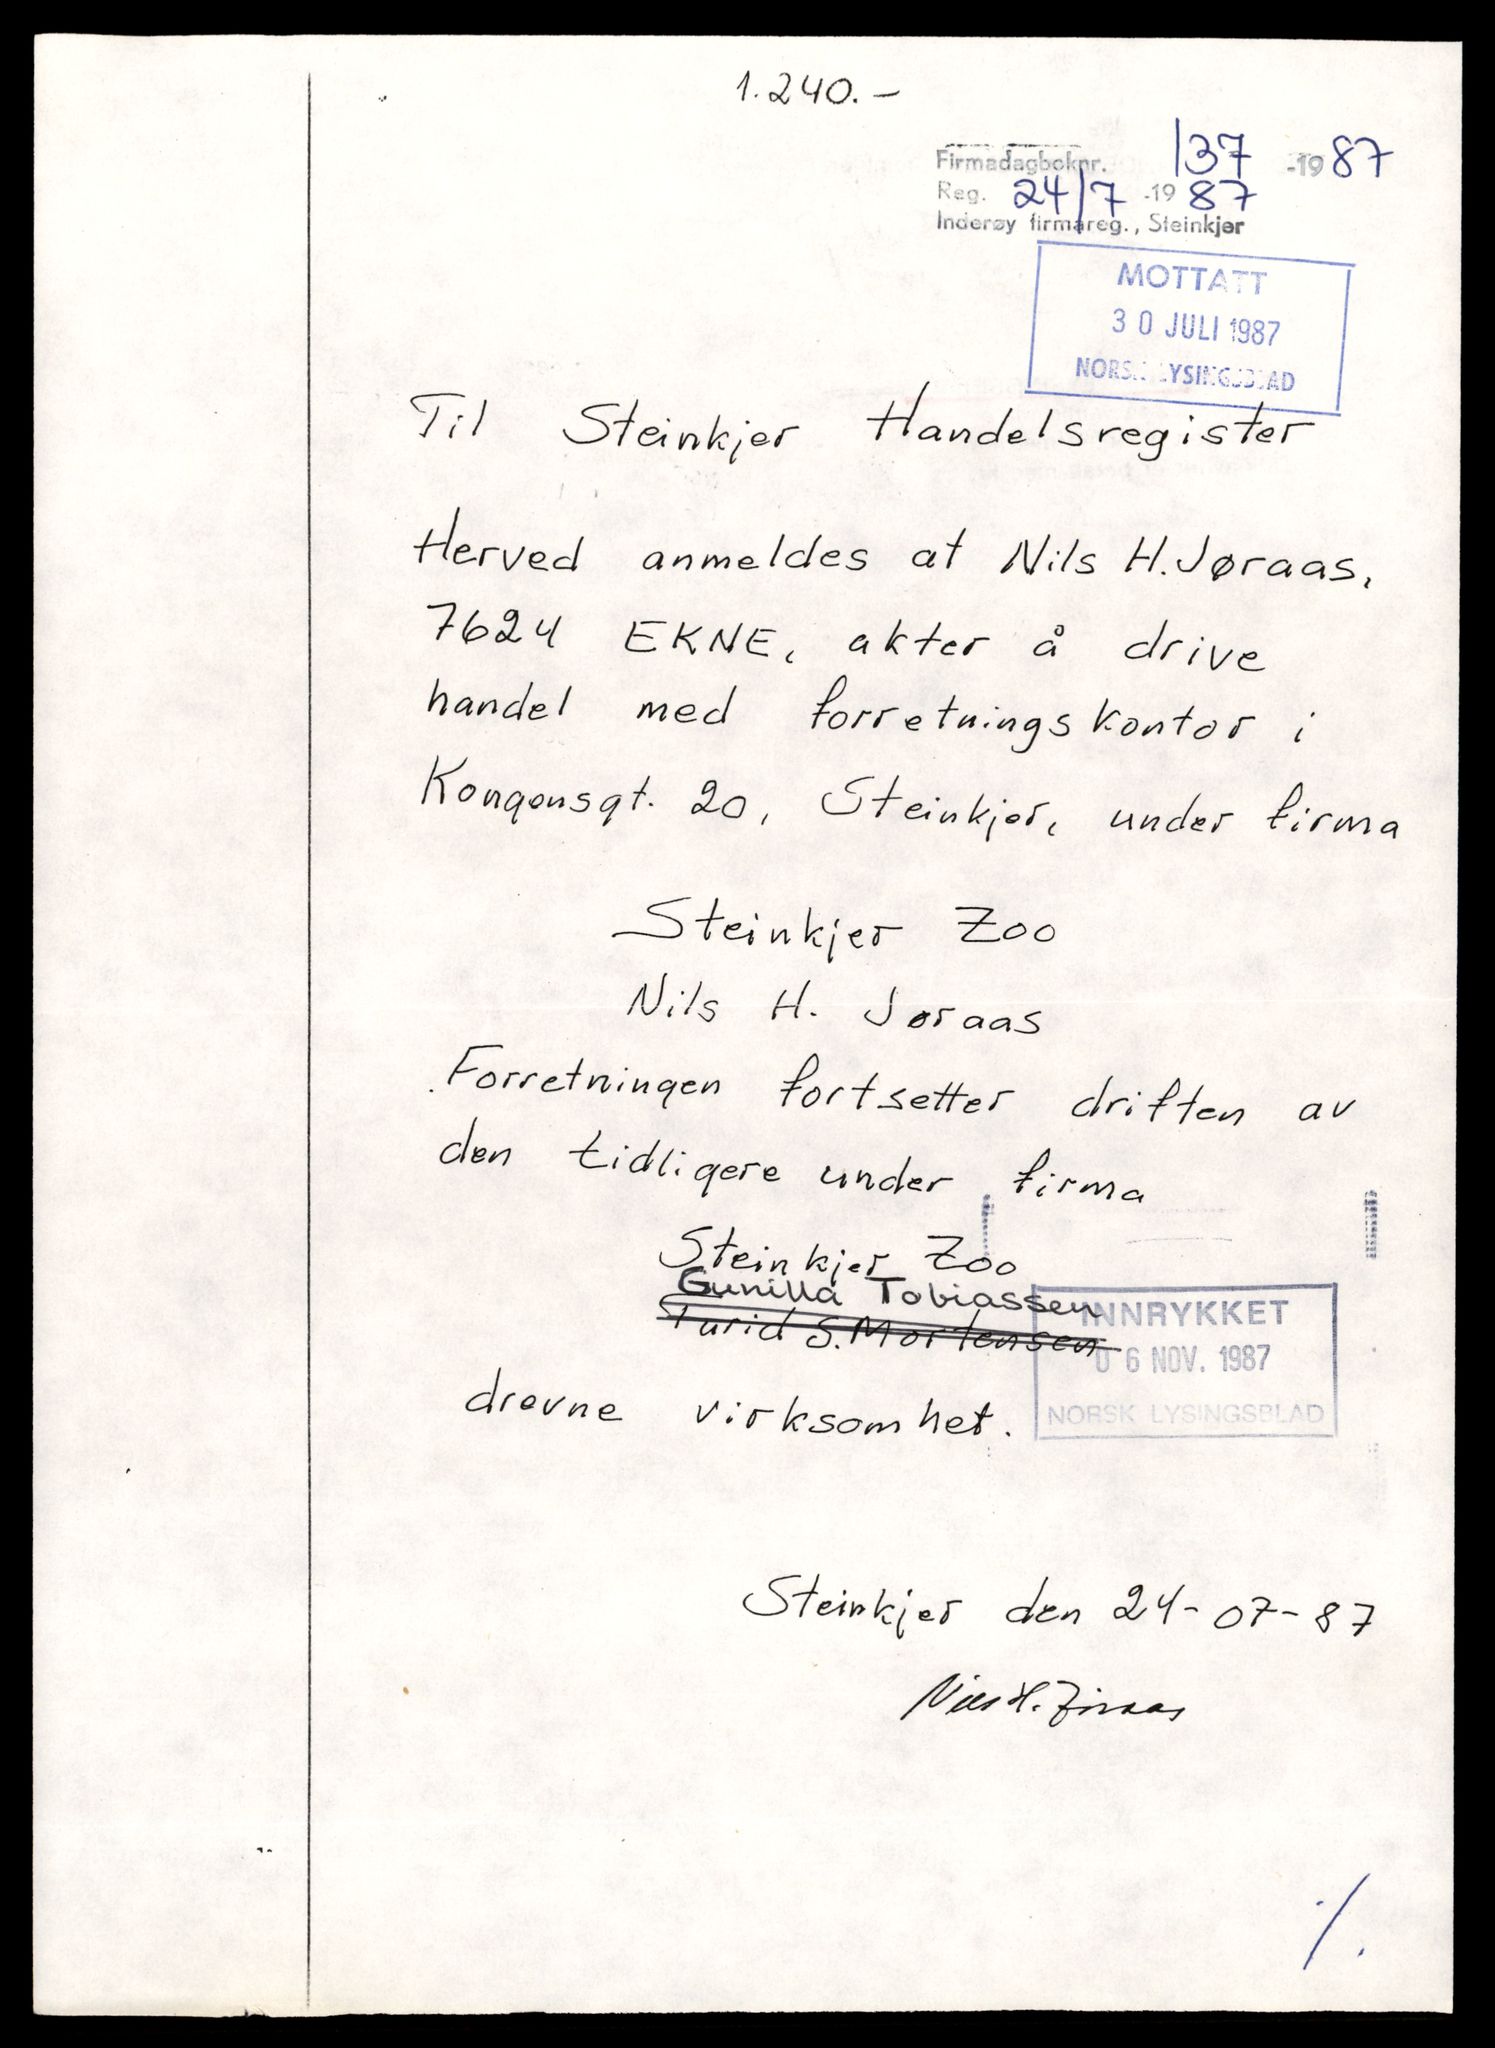 1.240.-
Firmadagboknr. 137 -1987
Reg. 24/7 -1987
Inderøy firmareg., Steinkjer
MOTTATT
30 JULI 1987
NORSK LYSINGSBLAD
Til Steinkjer Handelsregister
Herved anmeldes at Nils H. Jøraas,
7624 EKNE, akter å drive
handel med forretningskontor i
Kongensgt. 20, Steinkjer, under firma
Steinkjer Zoo
Nils H. Jøraas
Forretningen fortsetter driften av
den tidligere under firma
Steinkjer Zoo
Gunilla Tobiassen
Turid S. Mortensen
INNRYKKET
06 NOV. 1987
NORSK LYSINGSBLAD
drevne virksomhet.
Steinkjer den 24-07-87
Nils H. Jøraas
./.